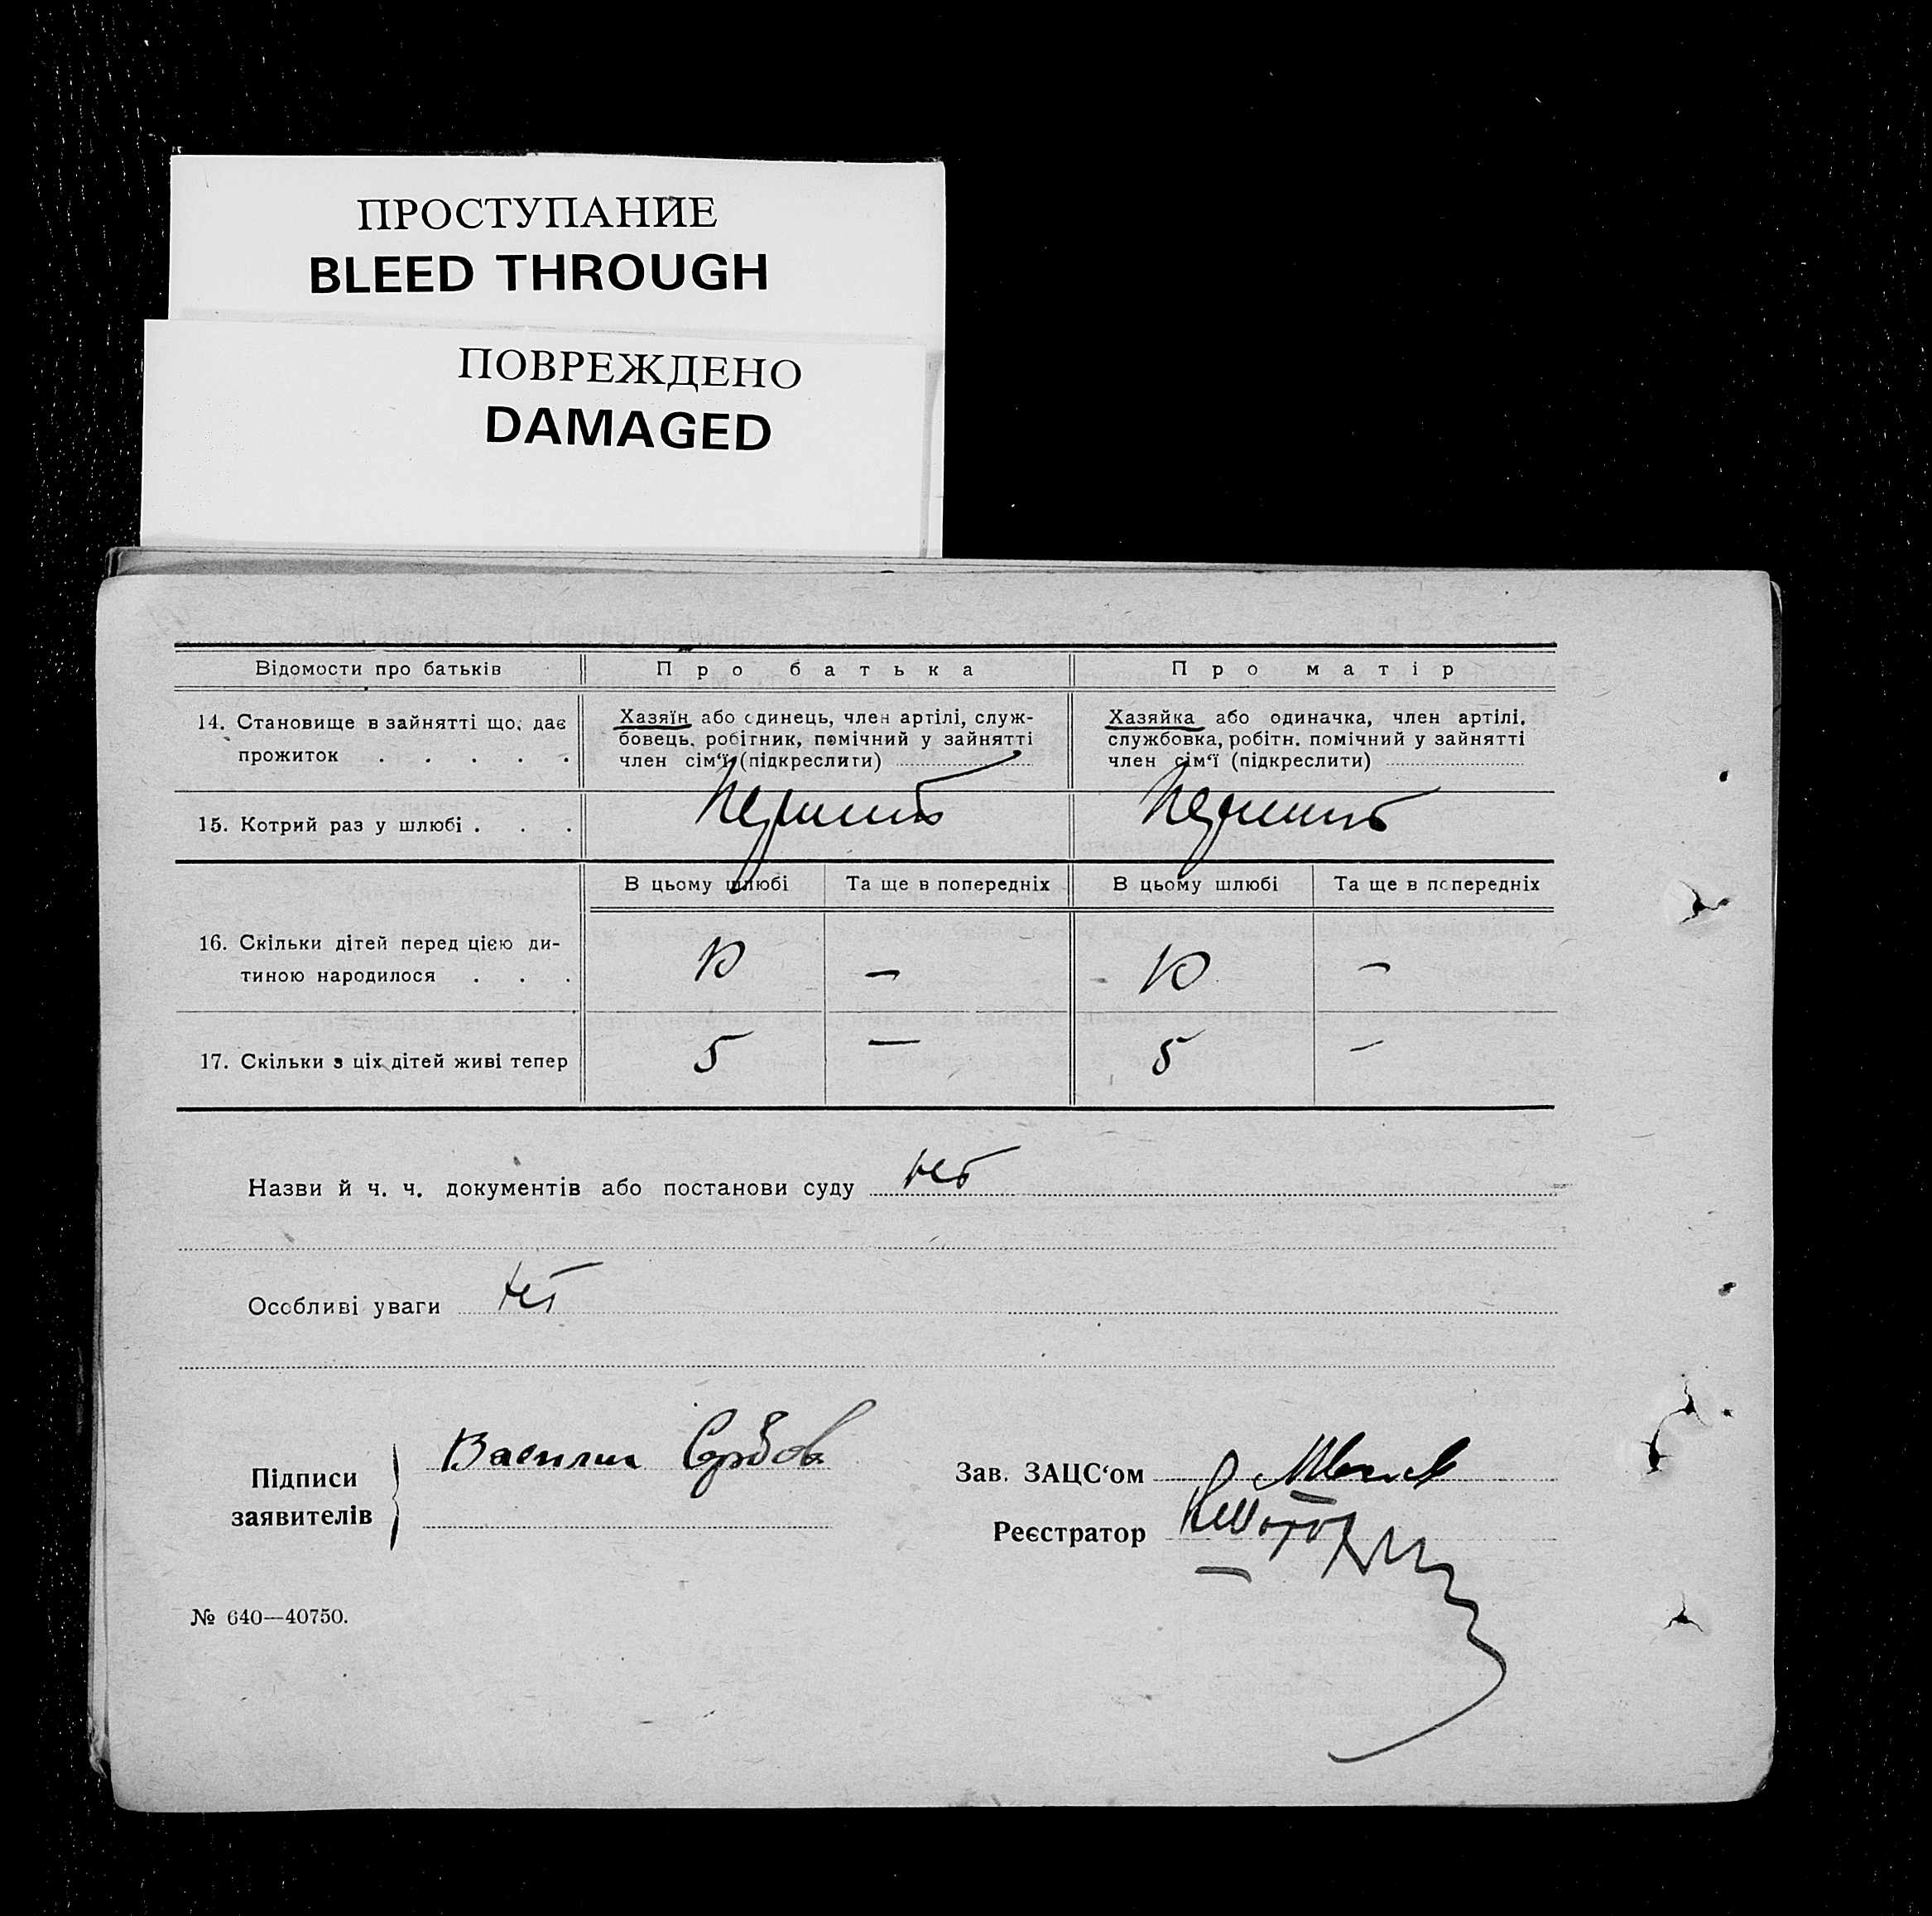 ПРОСТУПАНИЕ
BLEED THROUGH
ПОВРЕЖДЕНО
DAMAGED
Відомости про батьків Про батька Про матір
14. Становище в зайнятті що, дає прожиток . . . . .
Хазяїн або єдинець, член артілі, служ-
бовець, робітник, помічний у зайнятті
член сім‘ї (підкреслити)
Хазяйка або одиначка, член артілі,
службовка, робітн. помічний у зайнятті
член сім‘ї (підкреслити)
15. Котрий раз у шлюбі . . .
В цьому шлюбі Та ще в попередніх В цьому шлюбі Та ще в попередніх
16. Скільки дітей перед цією ди-
тиною народилося . . . 10 — 10 —
17. Скільки з ціх дітей живі тепер 5 — 5 —
Назви й ч. ч. документів або постанови суду нет
Особливі уваги нет
Підписи
заявителів
Василий
Зав. ЗАЦС‘ом
Реєстратор
№ 640—40750.